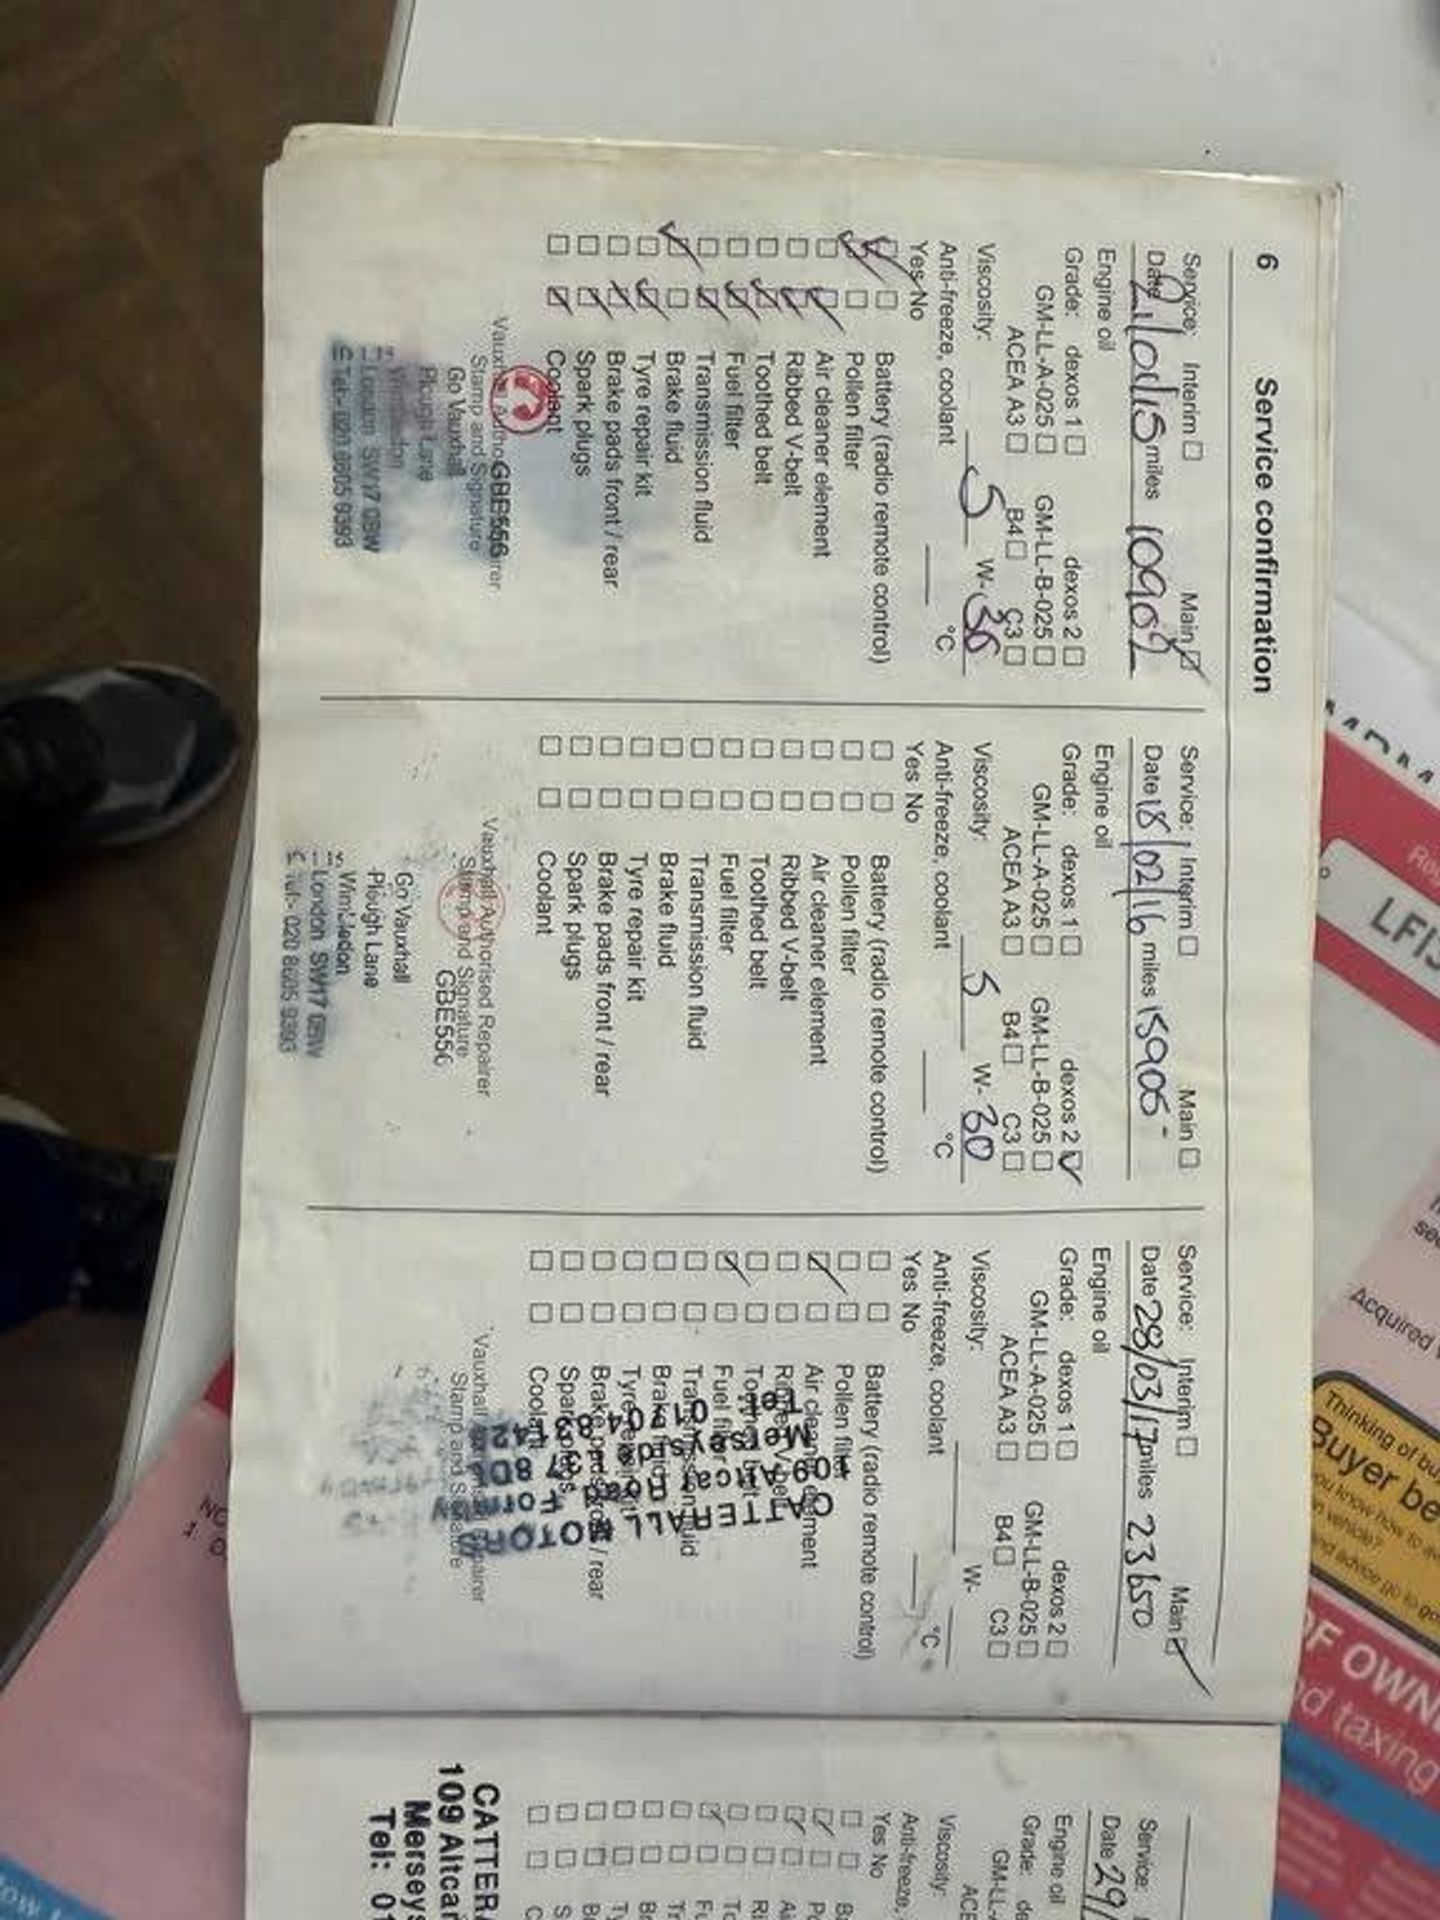 6 Service confirmation
Service: Interim ☐ Main ☑
Date 2/10/15 miles 10902
Engine oil
Grade: dexos 1 ☐ dexos 2 ☐
GM-LL-A-025 ☐ GM-LL-B-025 ☐
ACEA A3 ☐ B4 ☐ C3 ☐
Viscosity: 5 W- 30
Anti-freeze, coolant °C
Yes No
Battery (radio remote control)
Pollen filter
Air cleaner element
Ribbed V-belt
Toothed belt
Fuel filter
Transmission fluid
Brake fluid
Tyre repair kit
Brake pads front / rear
Spark plugs
Coolant
GBE556
Stamp and Signature
Go Vauxhall
Plough Lane
Wimbledon
London SW17 0BW
Tel:- 020 8605 9393
Service: Interim ☐ Main ☐
Date 18/02/16 miles 15905
Engine oil
Grade: dexos 1 ☐ dexos 2 ☑
GM-LL-A-025 ☐ GM-LL-B-025 ☐
ACEA A3 ☐ B4 ☐ C3 ☐
Viscosity: 5 W- 30
Anti-freeze, coolant °C
Yes No
☐ ☐ Battery (radio remote control)
☐ ☐ Pollen filter
☐ ☐ Air cleaner element
☐ ☐ Ribbed V-belt
☐ ☐ Toothed belt
☐ ☐ Fuel filter
☐ ☐ Transmission fluid
☐ ☐ Brake fluid
☐ ☐ Tyre repair kit
☐ ☐ Brake pads front / rear
☐ ☐ Spark plugs
☐ ☐ Coolant
Vauxhall Authorised Repairer
Stamp and Signature
GBE556
Go Vauxhall
Plough Lane
Wimbledon
London SW17 0BW
Tel:- 020 8605 9393
Service: Interim ☐ Main ☑
Date 28/03/17 miles 23650
Engine oil
Grade: dexos 1 ☐ dexos 2 ☐
GM-LL-A-025 ☐ GM-LL-B-025 ☐
ACEA A3 ☐ B4 ☐ C3 ☐
Viscosity: W-
Anti-freeze, coolant °C
Yes No
Battery (radio remote control)
Pollen filter
Air cleaner element
Ribbed V-belt
Toothed belt
Fuel filter
Transmission fluid
Brake fluid
Tyre repair kit
Brake pads / rear
Spark plugs
Coolant
CATTERALL MOTORS
Formby
Merseyside L37 8D
Tel: 01704
Stamp and Signature
Service:
Date 29/
Engine oil
Grade:
GM-LL-
Viscosity:
Anti-freeze,
Yes No
CATTER
109 Altcar
Merseys
Tel: 01
LFIS
Acquired
Thinking of bu
Buyer be
you know how to
vehicle?
nd advice go to go
OF OWN
d taxing